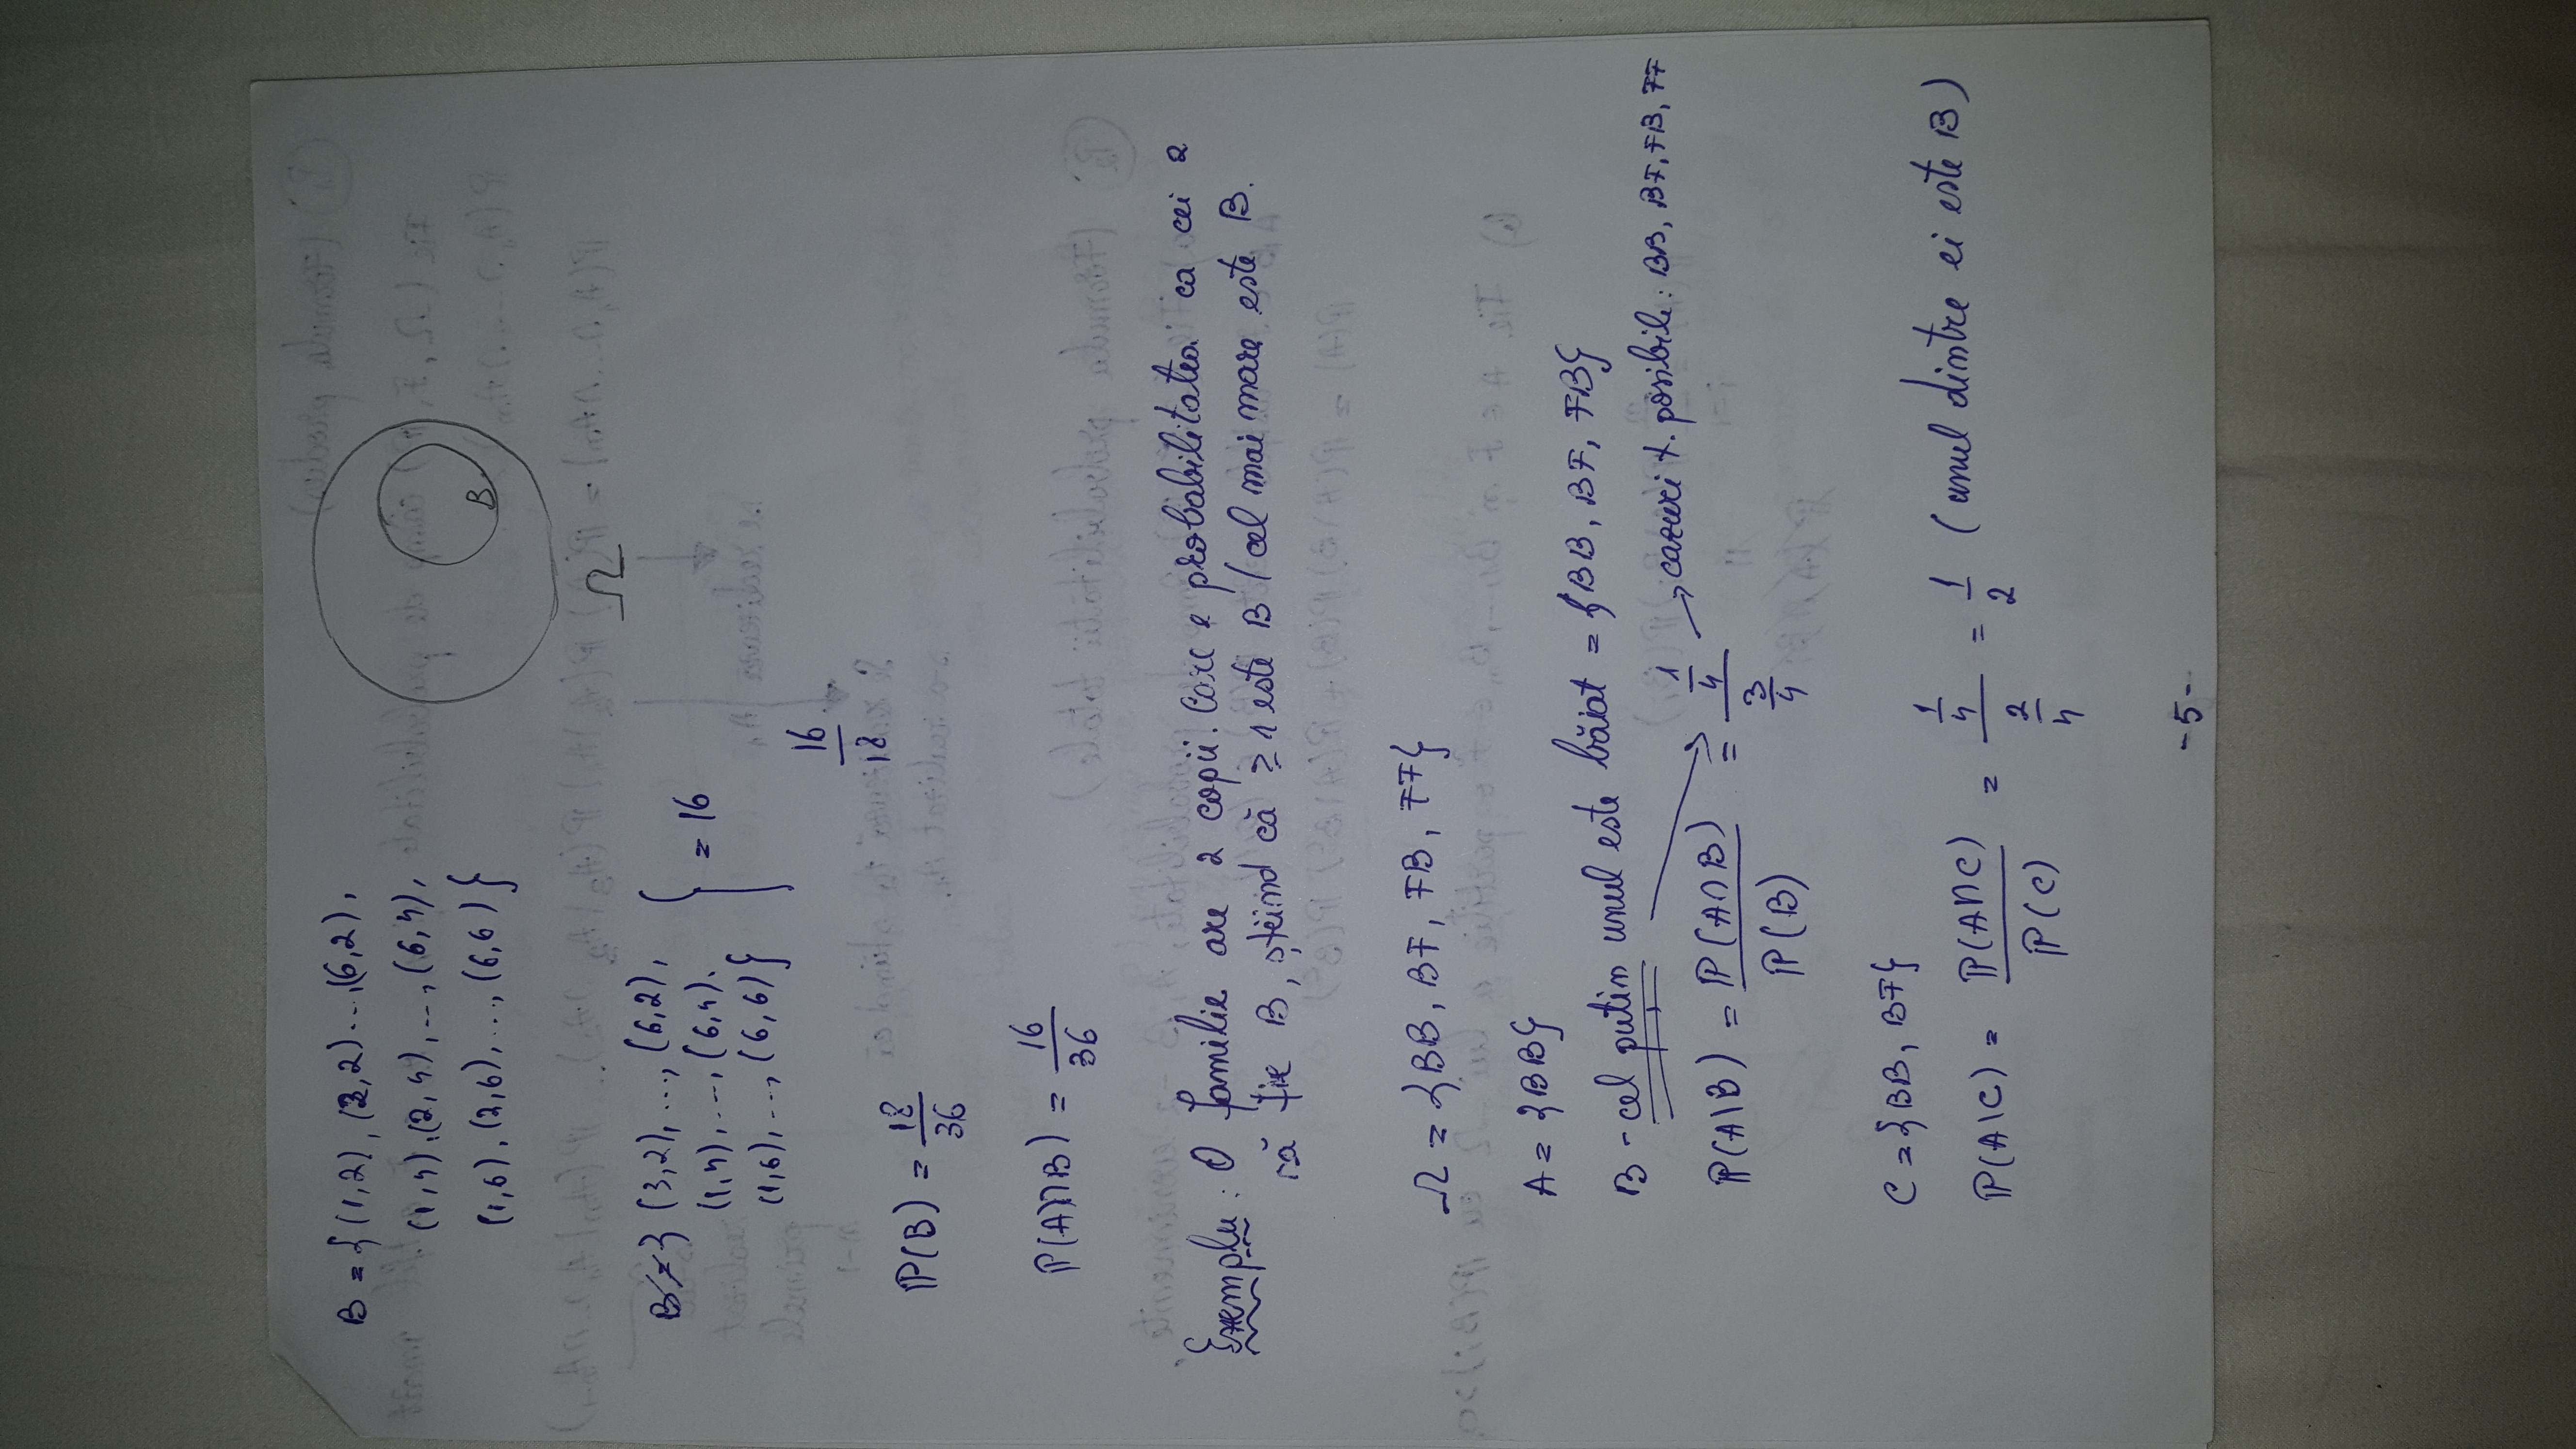 B = {(1,2), (2,2)...,(6,2),
(1,4),(2,4),...,(6,4),
(1,6),(2,6),...,(6,6)}
B
Ω
B = } (3,2),...,(6,2),
(1,4),...,(6,4).
(1,6),...,(6,6)}
} = 16
16/18
P(B) = 18/36
P(A∩B) = 16/36
Exemplu: O familie are 2 copii. Care e probabilitatea ca cei 2
să fie B, știind că ≥1 este B / cel mai mare este B.
Ω = {BB, BF, FB, FF}
A = {BB}
B - cel puțin unul este băiat = {BB, BF, FB}
P(A|B) = P(A∩B)/P(B) = (1/4)/(3/4) → cazuri t. posibile: BB, BF, FB, FF
C = {BB, BF}
P(A|C) = P(A∩C)/P(C) = (1/4)/(2/4) = 1/2 (unul dintre ei este B)
-5-